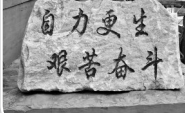 自力更生
艰苦奋斗